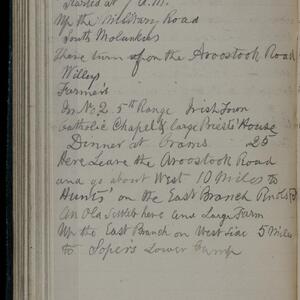 Started at 7 A.M.
Up the Military Road
South Molunkus
there turn off on the Aroostook Road
Willys
Farmer's
In No. 2 5th Range Irish Town
Catholic Chapel & large Priest's House
Dinner at Crams 25
Here Leave the Aroostook Road
and go about West 10 Miles to
Hunts' on the East Branch
An Old Settler here and Large Farm
Up the East Branch on West side 5 Miles
to Soper's Lower Camp